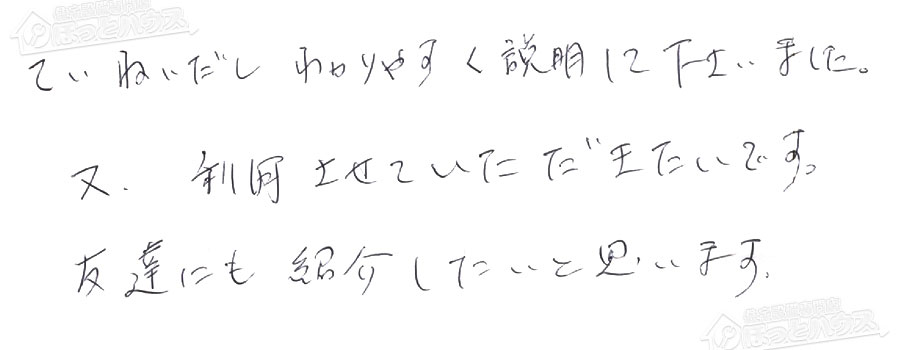 住宅設備専門店
ほっとハウス
ていねいだし わかりやすく説明して下さいました。
又、利用させていただきたいです。
友達にも紹介したいと思います。
住宅設備専門店
ほっとハウス